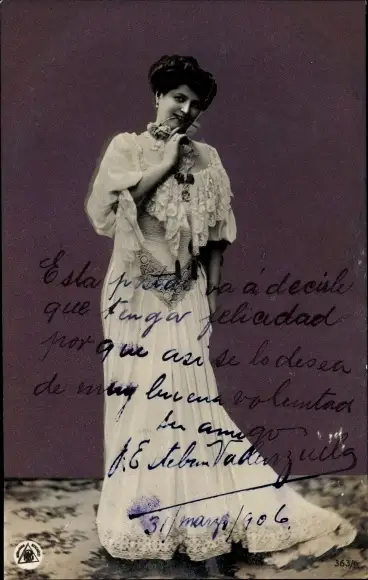 Esta postal va á decirle
que tenga felicidad
porque asi se lo desea
de muy buena voluntad
su amigo
J. Esteban Valenzuela
31/marzo/906.
363/